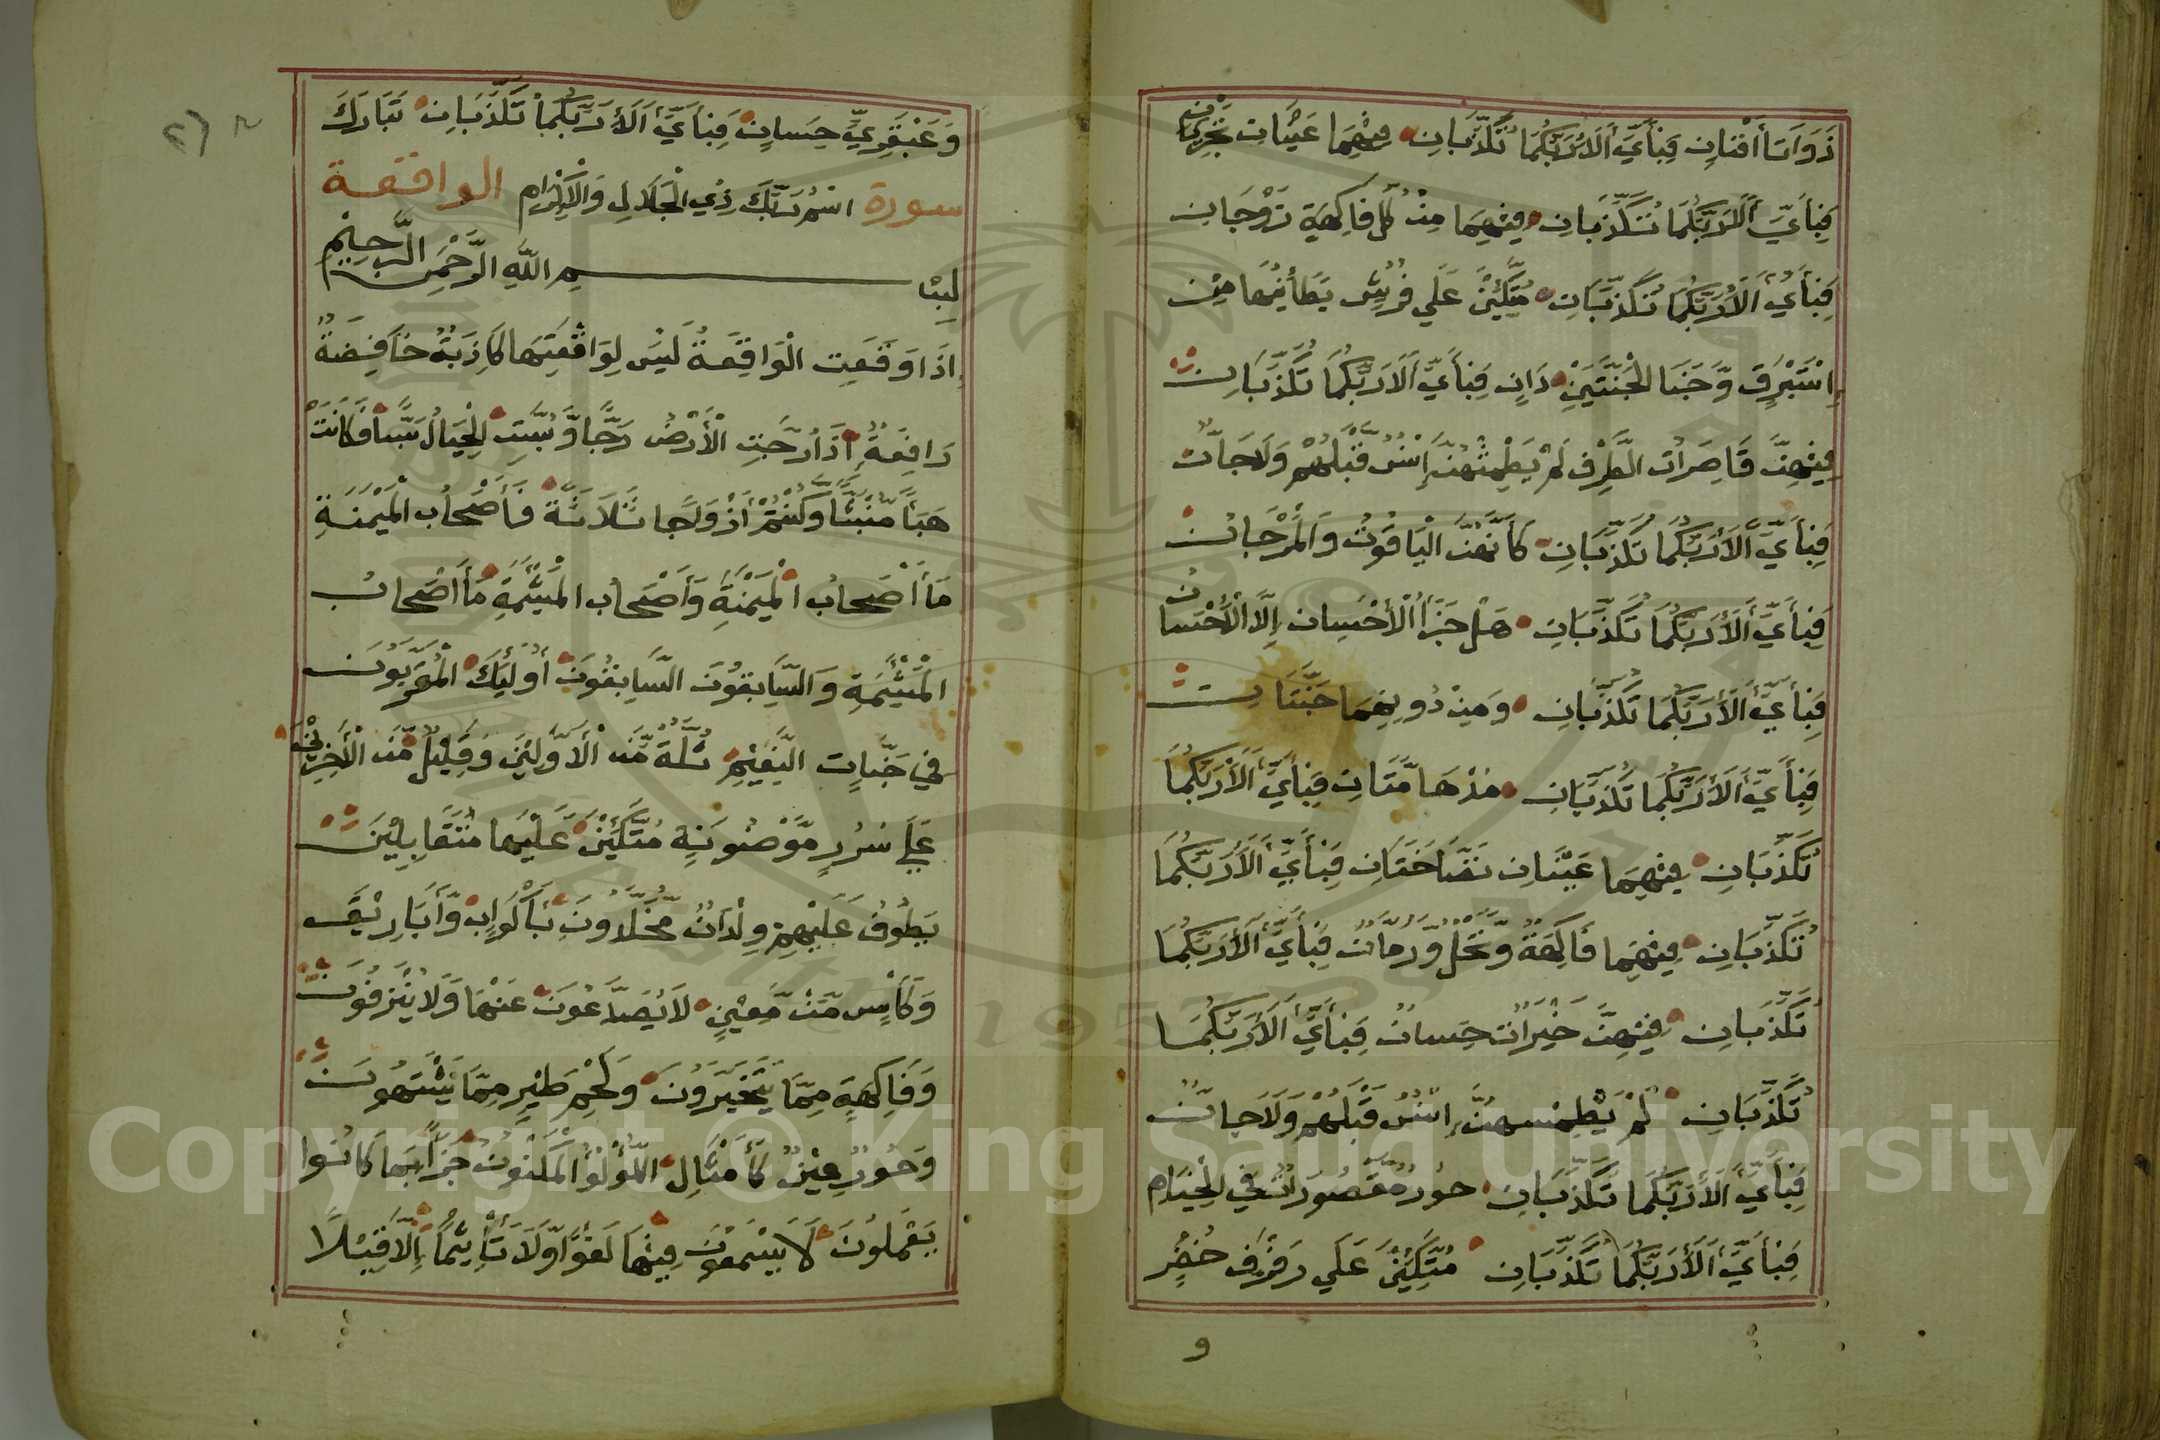 ذَوَاتَا أَفْنَانِ فَبِأَيِّ أَلَاءِ رَبِّكُمَا تُكَذِّبَانِ فِيْهِمَا عَيْنَانِ تَجْرِيَانِ
فَبِأَيِّ أَلَاءِ رَبِّكُمَا تُكَذِّبَانِ فِيْهِمَا مِنْ كُلِّ فَاكِهَةٍ زَوْجَانِ
فَبِأَيِّ أَلَاءِ رَبِّكُمَا تُكَذِّبَانِ مُتَّكِئِيْنَ عَلَي فُرُشٍ بَطَائِنُهَا مِنْ
إِسْتَبْرَقٍ وَّجَنَا الْجَنَّتَيْنِ دَانٍ فَبِأَيِّ أَلَاءِ رَبِّكُمَا تُكَذِّبَانِ
فِيْهِنَّ قَاصِرَاتُ الطَّرْفِ لَمْ يَطْمِثْهُنَّ إِنْسٌ قَبْلَهُمْ وَلَا جَانٌّ
فَبِأَيِّ أَلَاءِ رَبِّكُمَا تُكَذِّبَانِ كَأَنَّهُنَّ الْيَاقُوْتُ وَالْمَرْجَانُ
فَبِأَيِّ أَلَاءِ رَبِّكُمَا تُكَذِّبَانِ هَلْ جَزَاُ الْأِحْسَانِ إِلَّا الْأِحْسَانُ
فَبِأَيِّ أَلَاءِ رَبِّكُمَا تُكَذِّبَانِ وَمِنْ دُونِهِمَا جَنَّتَانِ
فَبِأَيِّ أَلَاءِ رَبِّكُمَا تُكَذِّبَانِ مُدْهَامَّتَانِ فَبِأَيِّ أَلَاءِ رَبِّكُمَا
تُكَذِّبَانِ فِيْهِمَا عَيْنَانِ نَضَّاخَتَانِ فَبِأَيِّ أَلَاءِ رَبِّكُمَا
تُكَذِّبَانِ فِيْهِمَا فَاكِهَةٌ وَّنَخْلٌ وَّرُمَّانٌ فَبِأَيِّ أَلَاءِ رَبِّكُمَا
تُكَذِّبَانِ فِيْهِنَّ خَيْرَاتٌ حِسَانٌ فَبِأَيِّ أَلَاءِ رَبِّكُمَا
تُكَذِّبَانِ لَمْ يَطْمِسهُنَّ إِنْسٌ قَبْلَهُمْ وَلَا جَانٌّ
فَبِأَيِّ أَلَاءِ رَبِّكُمَا تُكَذِّبَانِ حُورٌ مَّقْصُورَاتٌ فِي الْخِيَامِ
فَبِأَيِّ أَلَاءِ رَبِّكُمَا تُكَذِّبَانِ مُتَّكِئِيْنَ عَلَي رَفْرَفٍ خُضْرٍ
و
وَعَبْقَرِيٍّ حِسَانٍ فَبِأَيِّ أَلَاءِ رَبِّكُمَا تُكَذِّبَانِ تَبَارَكَ
سورة اسْمُ رَبِّكَ ذِي الْجَلَالِ وَالْإِكْرَامِ الواقعة
بسم اللَّهِ الرَّحْمٰنِ الرَّحِيْمِ
إِذَا وَقَعَتِ الْوَاقِعَةُ لَيْسَ لِوَاقْعَتِهَا كَاذِبَةٌ خَافِضَةٌ
رَافِعَةٌ إِذَا رُجَّتِ الْأَرْضُ رَجًّا وَّبُسَّتِ الْجِبَالُ بَسًّا فَكَانَتْ
هَبَأً مُّنْبَثًّا وَكُنْتُمْ أَزْوَاجًا ثَلَاثَةً فَأَصْحَابُ الْمَيْمَنَةِ
مَا أَصْحَابُ الْمَيْمَنَةِ وَأَصْحَابُ الْمَشْئَمَةِ مَا أَصْحَابُ
الْمَشْئَمَةِ وَالسَّابِقُونَ السَّابِقُونَ أُولٰئِكَ الْمُقَرَّبُونَ
فِي جَنَّاتِ النَّعِيْمِ ثُلَّةٌ مِّنَ الْأَوَّلِيْنَ وَقَلِيْلٌ مِّنَ الْأَخِرِيْنَ
عَلَي سُرُرٍ مَّوْضُونَةٍ مُتَّكِئِيْنَ عَلَيْهَا مُتَقَابِلِيْنَ
يَطُوْفُ عَلَيْهِمْ وِلْدَانٌ مُّخَلَّدُونَ بِأَكْوَابٍ وَّأَبَارِيْقَ
وَكَأْسٍ مِّنْ مَّعِيْنٍ لَا يُصَدَّعُونَ عَنْهَا وَلَا يُنْزِفُونَ
وَفَاكِهَةٍ مِمَّا يَتَخَيَّرُوْنَ وَلَحْمِ طَيْرٍ مِمَّا يَشْتَهُونَ
وَحُورٌ عِيْنٌ كَأَمْثَالِ اللُّؤْلُؤِ الْمَكْنُوْنِ جَزَاً بِمَا كَانُوا
يَعْمَلُونَ لَا يَسْمَعُونَ فِيْهَا لَغْوًا وَّلَا تَأْثِيْمًا إِلَّا قِيْلًا
Copyright © King Saud University
1957